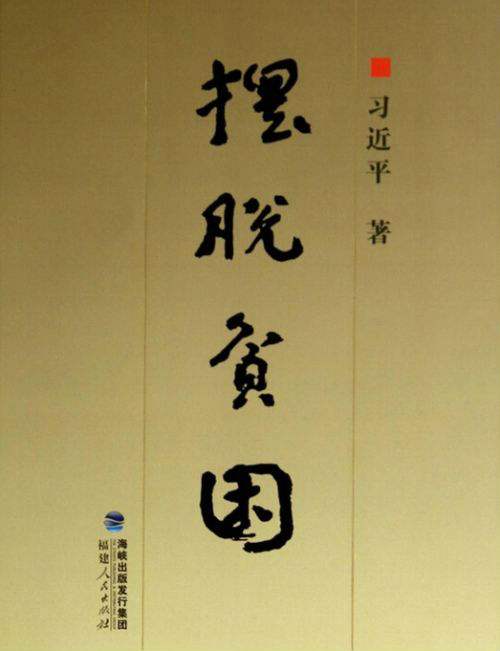 摆脱贫困
习近平 著
海峡出版发行集团
福建人民出版社